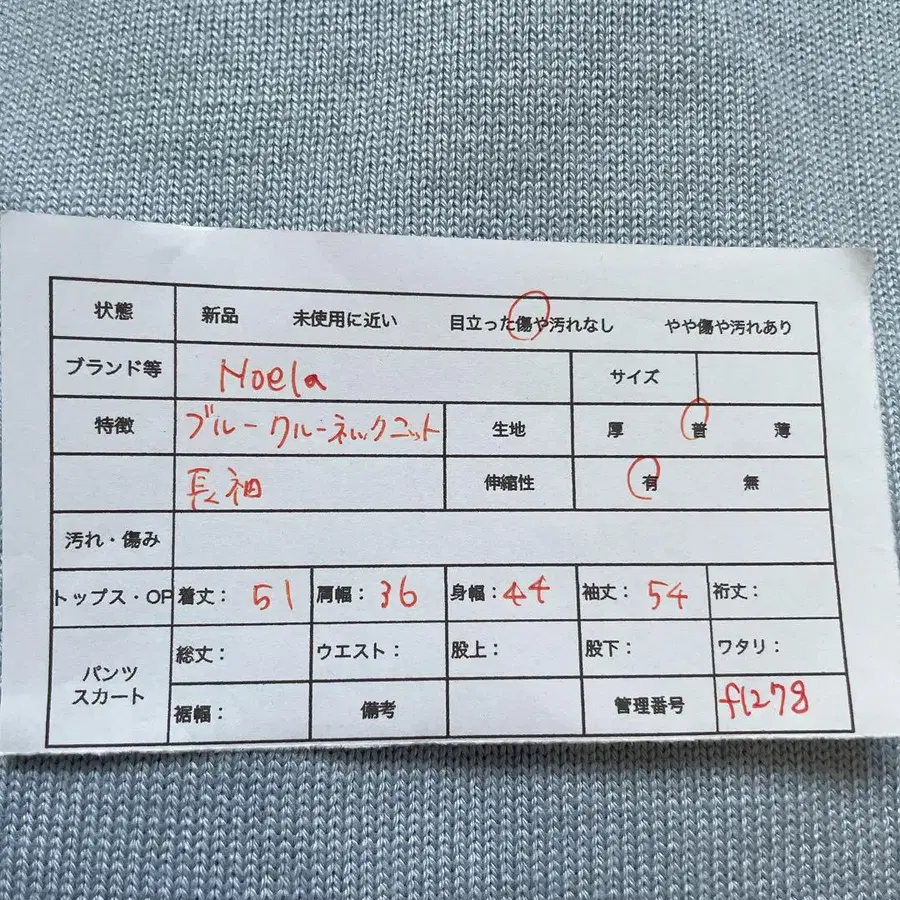 状態 新品 未使用に近い 目立った傷や汚れなし やや傷や汚れあり
ブランド等 Noela サイズ
特徴 ブルークルーネックニット 生地 厚 普 薄
長袖 伸縮性 有 無
汚れ・傷み
トップス・OP 着丈: 51 肩幅: 36 身幅: 44 袖丈: 54 裄丈:
パンツ スカート 総丈: ウエスト: 股上: 股下: ワタリ:
裾幅: 備考 管理番号 f1278